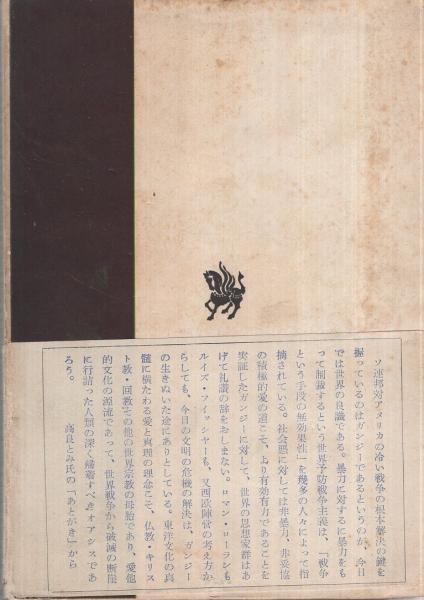 ソ連邦対アメリカの冷い戦争の根本解決の鍵を
握っているのはガンジーであるというのが、今日
では世界の良識である。暴力に対するに暴力をも
って制裁するという世界予防戦争主義は、「戦争
という手段の無効果性」を幾多の人々によって指
摘されている。社会悪に対しては非暴力、非妥協
の積極的愛の道こそ、より有効有力であることを
実証したガンジーに対して、世界の思想家群はあ
げて礼讃の辞をおしまない。ロマン・ローランも
ルイズ・フイッシヤーも、又西欧陣営の考え方か
らしても、今日の文明の危機の解決は、ガンジー
の生きぬいた途にありとしている。東洋文化の真
髄に横たわる愛と真理の理念こそ、仏教・キリス
ト教・回教其の他の世界宗教の母胎であり、愛他
的文化の源流であって、世界戦争から破滅の断崖
に行詰った人類の深く帰着すべきオアシスであ
ろう。
高良とみ氏の「あとがき」から